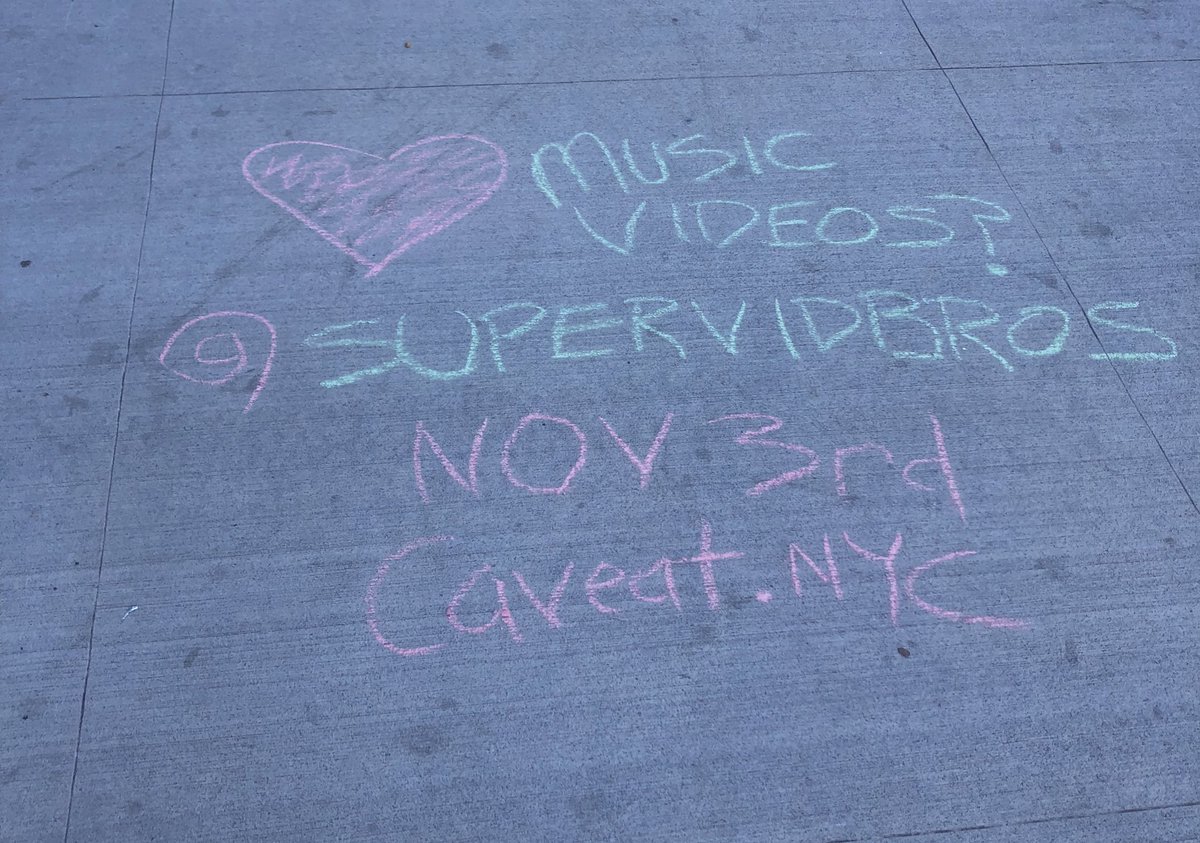 MUSIC
VIDEOS?
@SUPERVIDBROS
NOV 3rd
Caveat.NYC